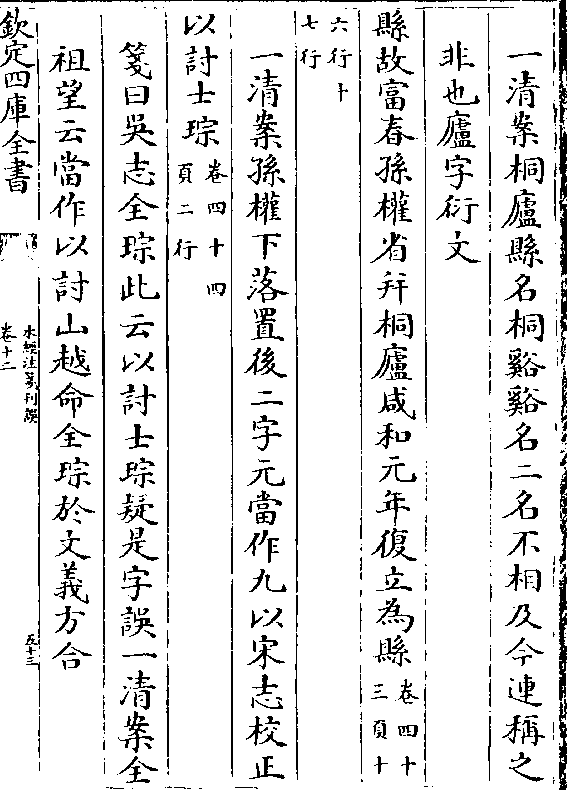 一清案桐廬縣名桐谿谿名二名不相及今連稱之
非也廬字衍文
縣故富春孫權省并桐廬咸和元年復立為縣卷四十三頁十
六行十
七行
一清案孫權下落置後二字元當作九以宋志校正
以討士琮卷四十四頁二行
箋曰吳志全琮此云以討士琮疑是字誤一清案全
祖望云當作以討山越命全琮於文義方合
欽定四庫全書
水經注箋刊誤
卷十二
五十三